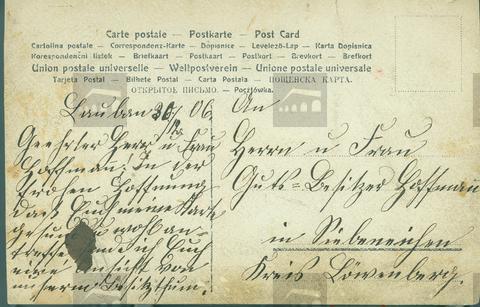 Carte postale — Postkarte — Post Card
Cartolina postale — Correspondenz-Karte — Dopisnice — Levelező-Lap — Karta Dopisnica
Korespondenční lístek — Briefkaart — Postkaart — Postkort — Brevkort — Brefkort
Union postale universelle — Weltpostverein — Unione postale universale
Tarjeta Postal — Bilhete Postal — Carta Postala — ПОЩЕНСКА КАРТА.
ОТКРЫТОЕ ПИСЬМО. — Pocztówka.
Lauban 30/ 06.
Geehrter Herr u. Frau
Hoffmann! In der
frohen Hoffnung
daß Euch meine Karte
gesund u wohl an-
treffe sende ich Euch
eine Ansicht von
unserm Besitzthum.
An
Herrn u Frau
Guts=Besitzer Hoffmann
in Siebeneichen
Kreis Löwenberg.